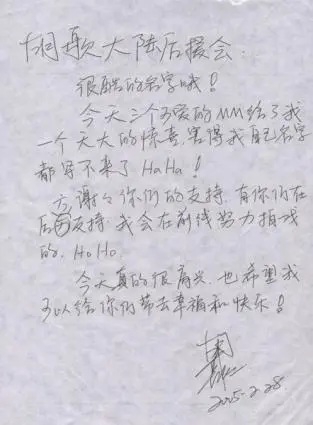 胡歌大陆后援会:
很酷的名字哦!
今天三个可爱的MM给了我
一个天大的惊喜,害得我自己名字
都写不来了HaHa!
谢谢你们的支持,有你们在
后面支持,我会在前线努力拍戏
的,HoHo.
今天真的很高兴,也希望我
可以给你们带去幸福和快乐!
胡歌
2005.2.28